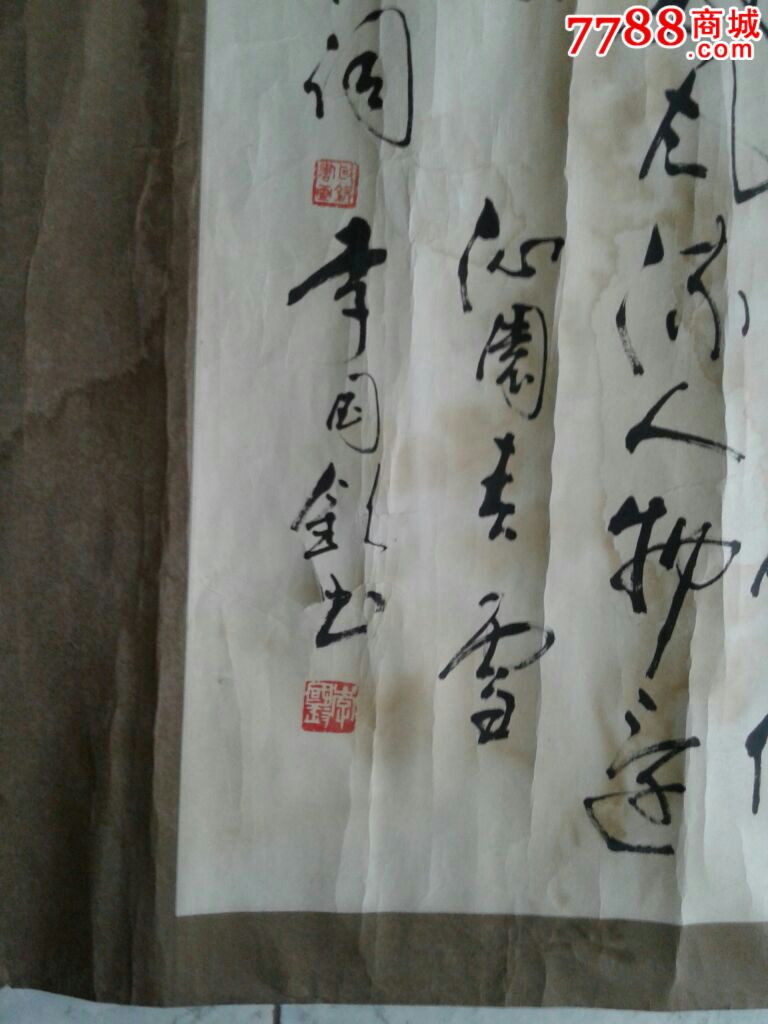 7788商城
.com
风流人物还
沁园春雪
词
李国钦书